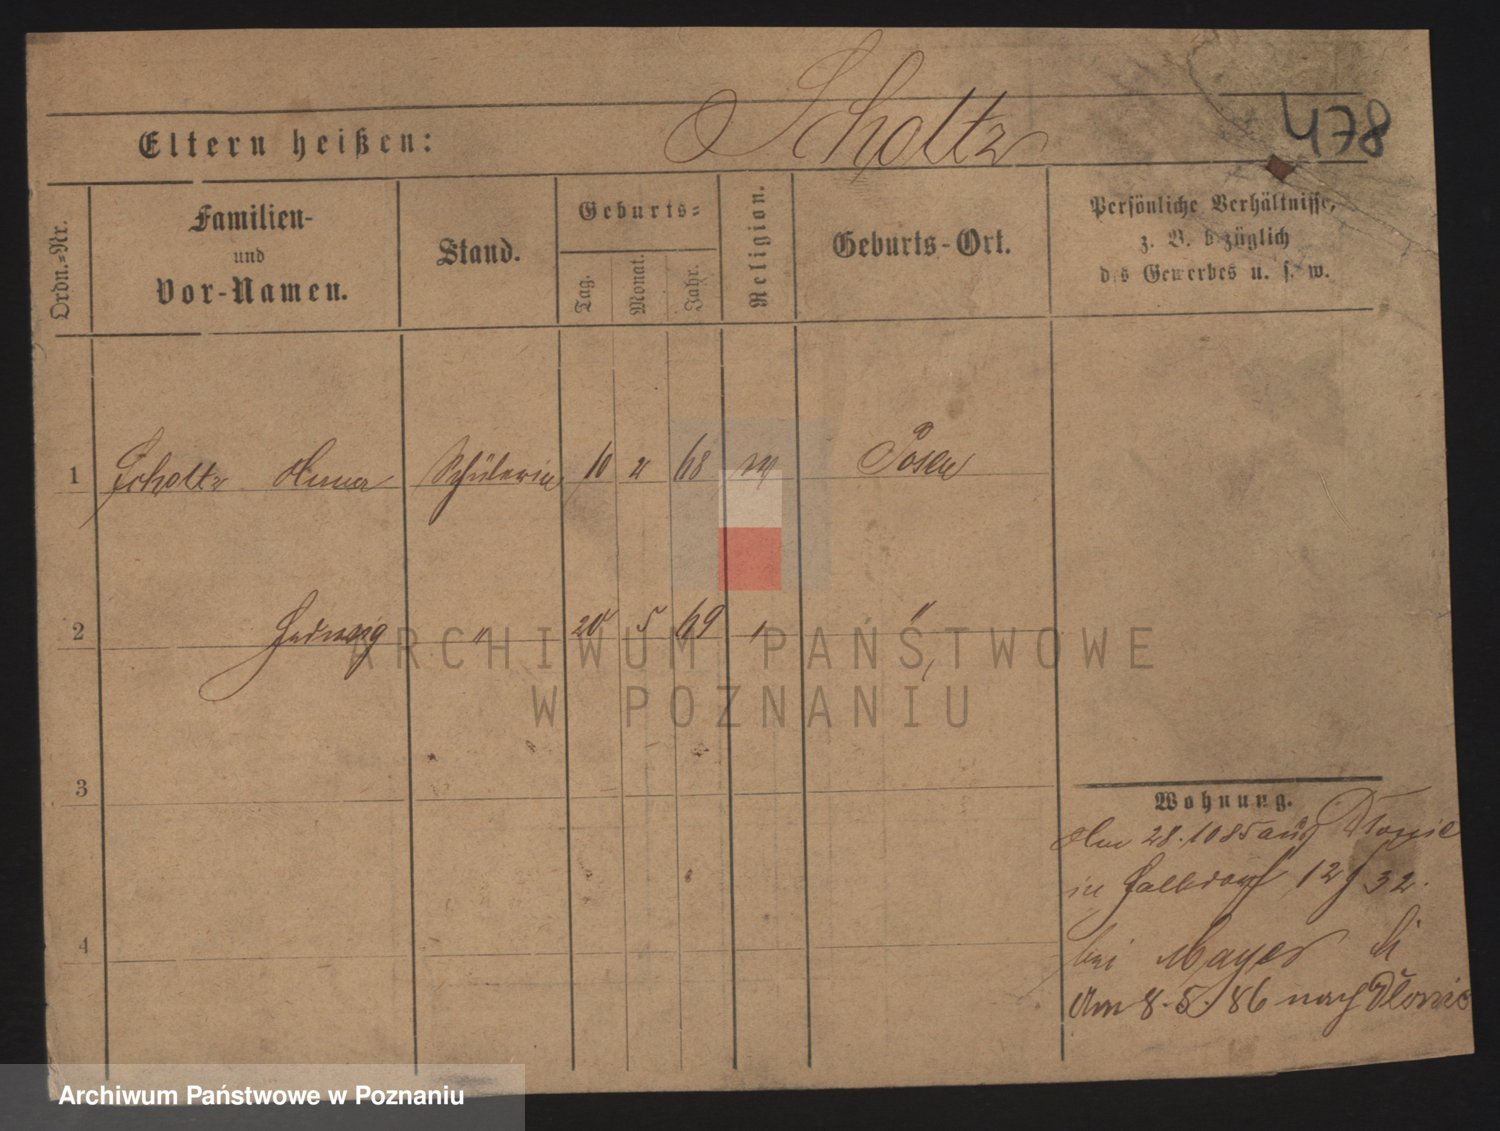 Scholtz
478
Eltern heißen:
Ordn.-Nr.
Familien-
und
Vor-Namen.
Stand.
Geburts-
Tag.
Monat.
Jahr.
Religion.
Geburts-Ort.
Persönliche Verhältnisse,
z. B. bezüglich
des Gewerbes u. s. w.
1 Scholtz Anna Schülerin 10 2 68 Posen
2 Hedwig " 20 5 69 " "
3
4
Wohnung.
Am 28.10 85 aus
in 12 / 32.
bei Mayer
Am 8.5.86 nach
ARCHIWUM PAŃSTWOWE
W POZNANIU
Archiwum Państwowe w Poznaniu